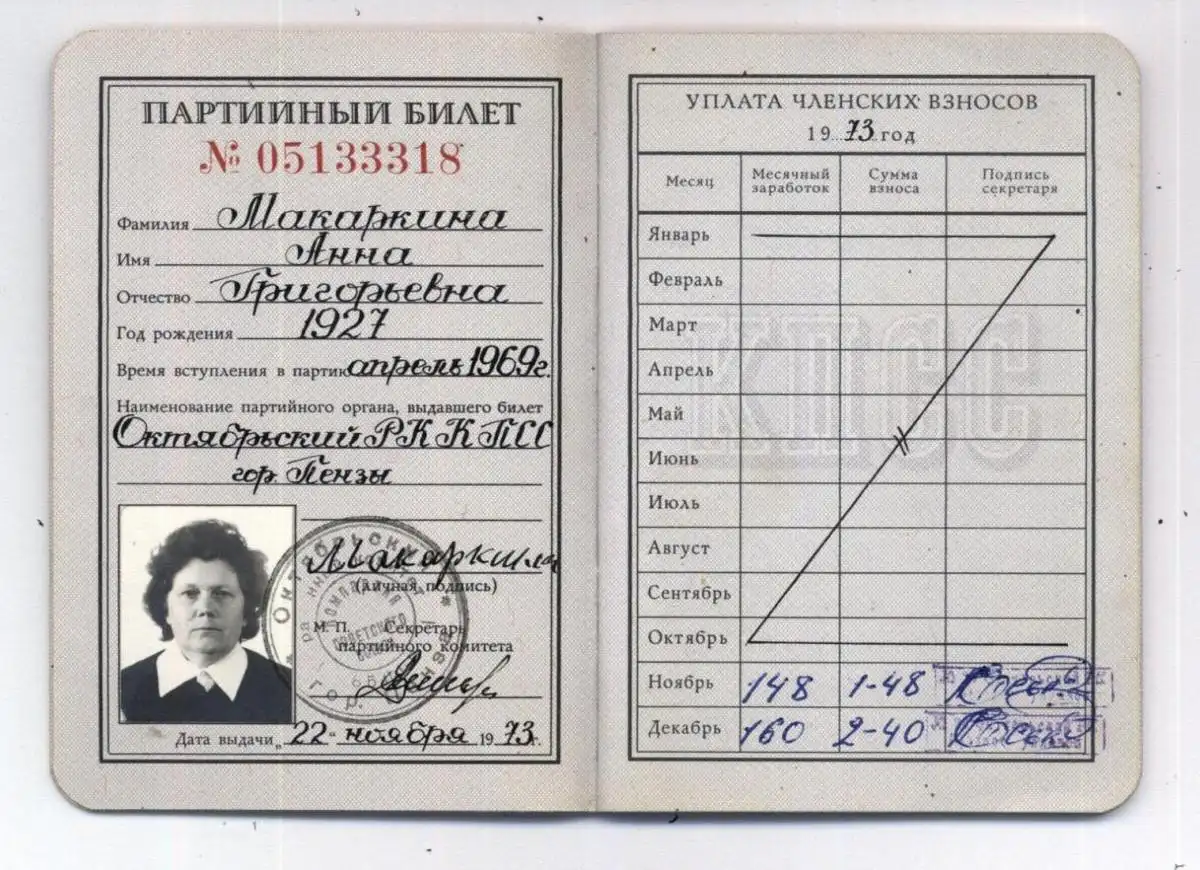 ПАРТИЙНЫЙ БИЛЕТ
№ 05133318
Фамилия Макаркина
Имя Анна
Отчество Григорьевна
Год рождения 1927
Время вступления в партию апрель 1969г.
Наименование партийного органа, выдавшего билет
Октябрьский РК КПСС
гор. Пензы
Макаркина
(личная подпись)
М. П. Секретарь
партийного комитета
Дата выдачи „22" ноября 1973г.
УПЛАТА ЧЛЕНСКИХ ВЗНОСОВ
1973 год
Месяц Месячный заработок Сумма взноса Подпись секретаря
Январь
Февраль
Март
Апрель
Май
Июнь
Июль
Август
Сентябрь
Октябрь
Ноябрь 148 1-48
Декабрь 160 2-40
КПСС